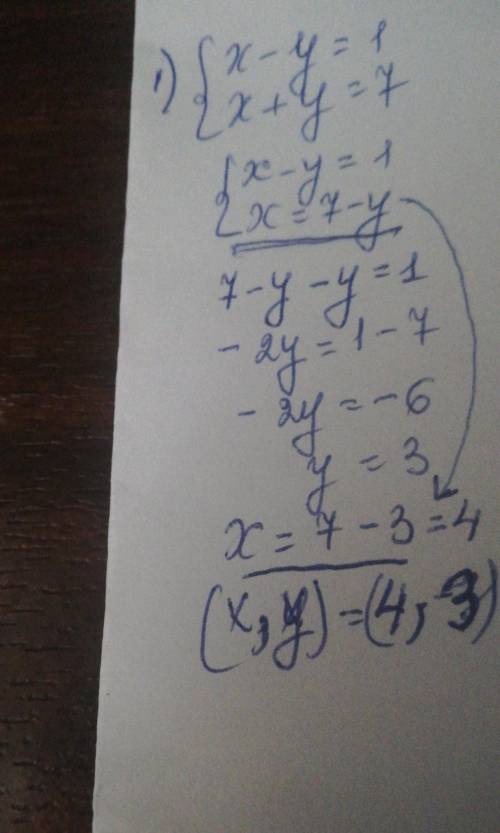 1) { x - y = 1
x + y = 7
{ x - y = 1
x = 7 - y
7 - y - y = 1
- 2y = 1 - 7
- 2y = - 6
y = 3
x = 7 - 3 = 4
(x, y) = (4, 3)